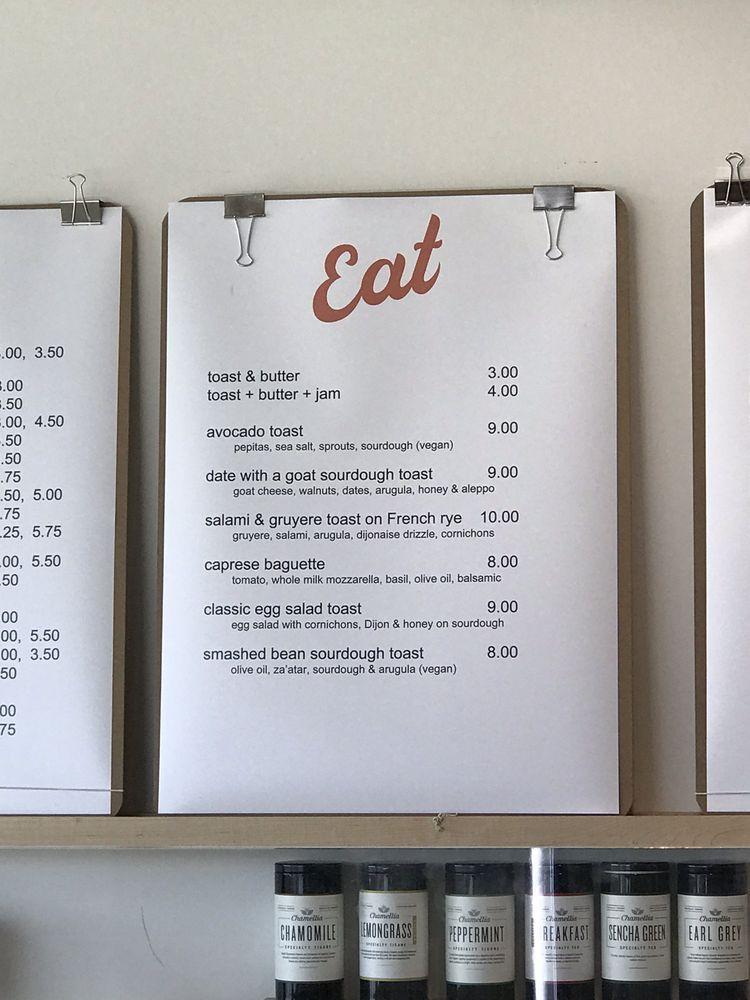 Eat
toast & butter 3.00
toast + butter + jam 4.00
avocado toast 9.00
pepitas, sea salt, sprouts, sourdough (vegan)
date with a goat sourdough toast 9.00
goat cheese, walnuts, dates, arugula, honey & aleppo
salami & gruyere toast on French rye 10.00
gruyere, salami, arugula, dijonaise drizzle, cornichons
caprese baguette 8.00
tomato, whole milk mozzarella, basil, olive oil, balsamic
classic egg salad toast 9.00
egg salad with cornichons, Dijon & honey on sourdough
smashed bean sourdough toast 8.00
olive oil, za'atar, sourdough & arugula (vegan)
.00, 3.50
.00
.50
.00, 4.50
.50
.50
.75
.50, 5.00
.75
.25, 5.75
.00, 5.50
.50
.00
.00, 5.50
.00, 3.50
.50
.00
.75
Chamellia
CHAMOMILE
SPECIALTY TISANE
Chamellia
LEMONGRASS
SPECIALTY TISANE
Chamellia
PEPPERMINT
SPECIALTY TISANE
Chamellia
BREAKFAST
SPECIALTY TEA
Chamellia
SENCHA GREEN
SPECIALTY TEA
Chamellia
EARL GREY
SPECIALTY TEA